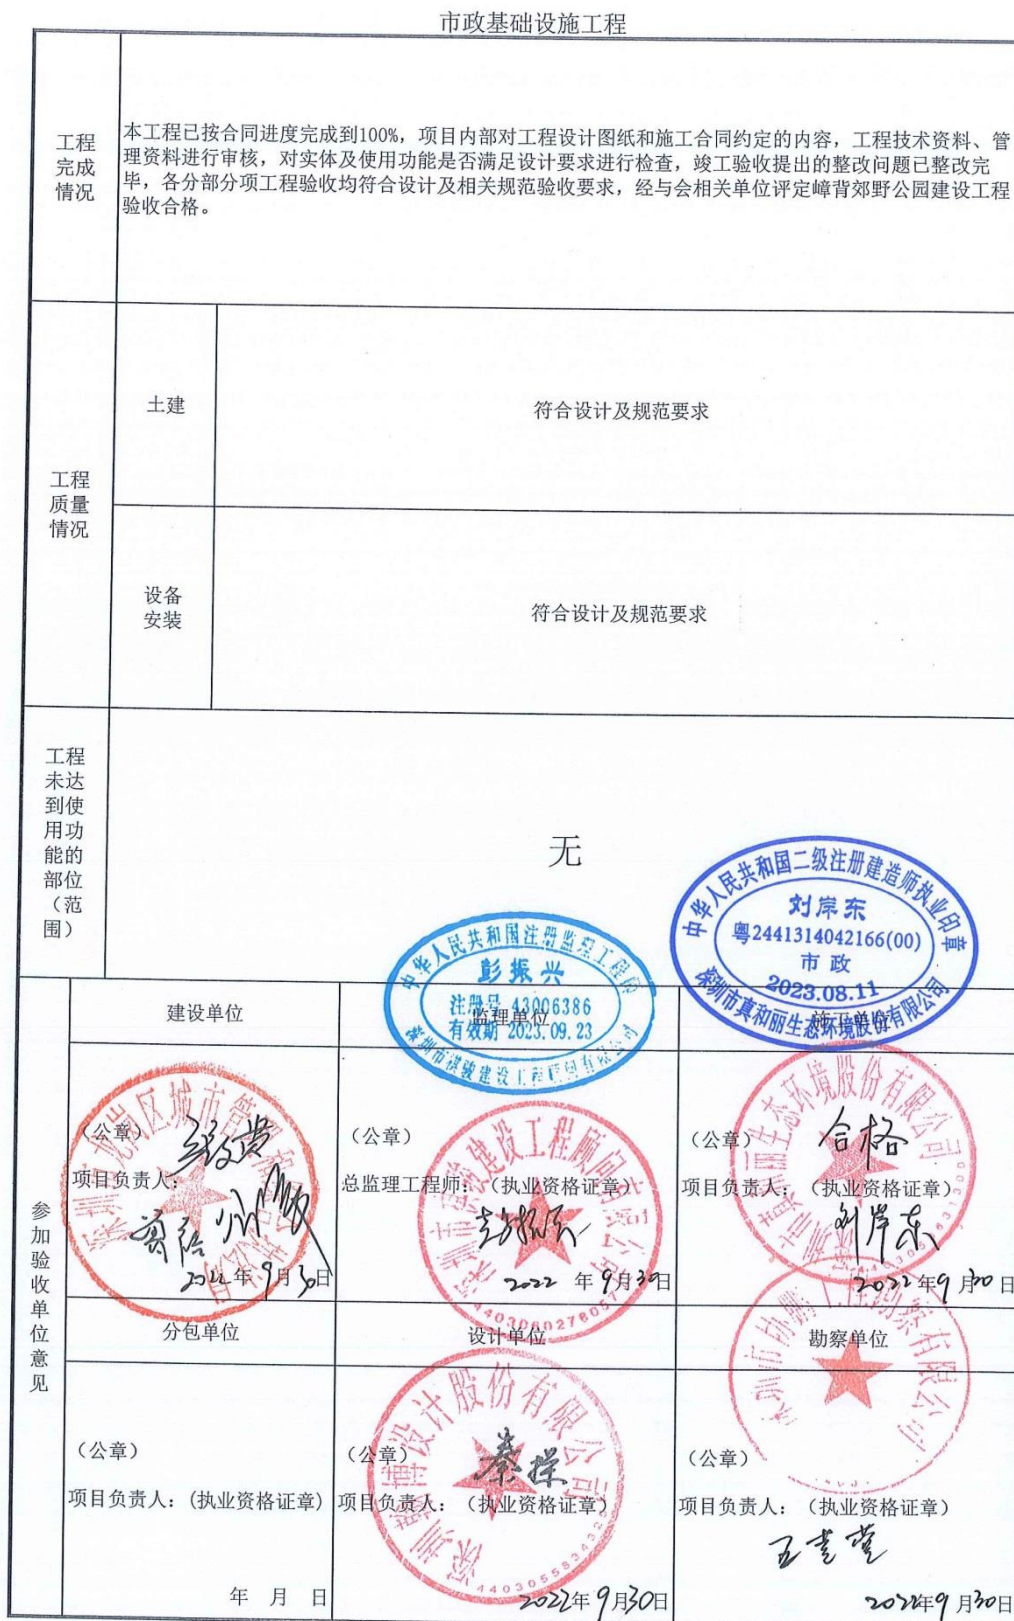 市政基础设施工程
工程
完成
情况
本工程已按合同进度完成到100%，项目内部对工程设计图纸和施工合同约定的内容，工程技术资料、管
理资料进行审核，对实体及使用功能是否满足设计要求进行检查，竣工验收提出的整改问题已整改完
毕，各分部分项工程验收均符合设计及相关规范验收要求，经与会相关单位评定嶂背郊野公园建设工程
验收合格。
工程
质量
情况
土建
符合设计及规范要求
设备
安装
符合设计及规范要求
工程
未达
到使
用功
能的
部位
（范
围）
无
中华人民共和国注册监理工程师
彭振兴
注册号 43006386
有效期 2023.09.23
中华人民共和国二级注册建造师执业印章
刘岸东
粤2441314042166(00)
市政
2023.08.11
深圳市真和丽生态环境股份有限公司
参加验收单位意见
建设单位
监理单位
施工单位
（公章）
项目负责人：
2022年9月30日
（公章）
总监理工程师：（执业资格证章）
彭振兴
2022年9月30日
（公章）
合格
项目负责人：（执业资格证章）
刘岸东
2022年9月30日
分包单位
设计单位
勘察单位
（公章）
项目负责人：（执业资格证章）
年 月 日
（公章）
秦操
项目负责人：（执业资格证章）
2022年9月30日
（公章）
项目负责人：（执业资格证章）
2022年9月30日